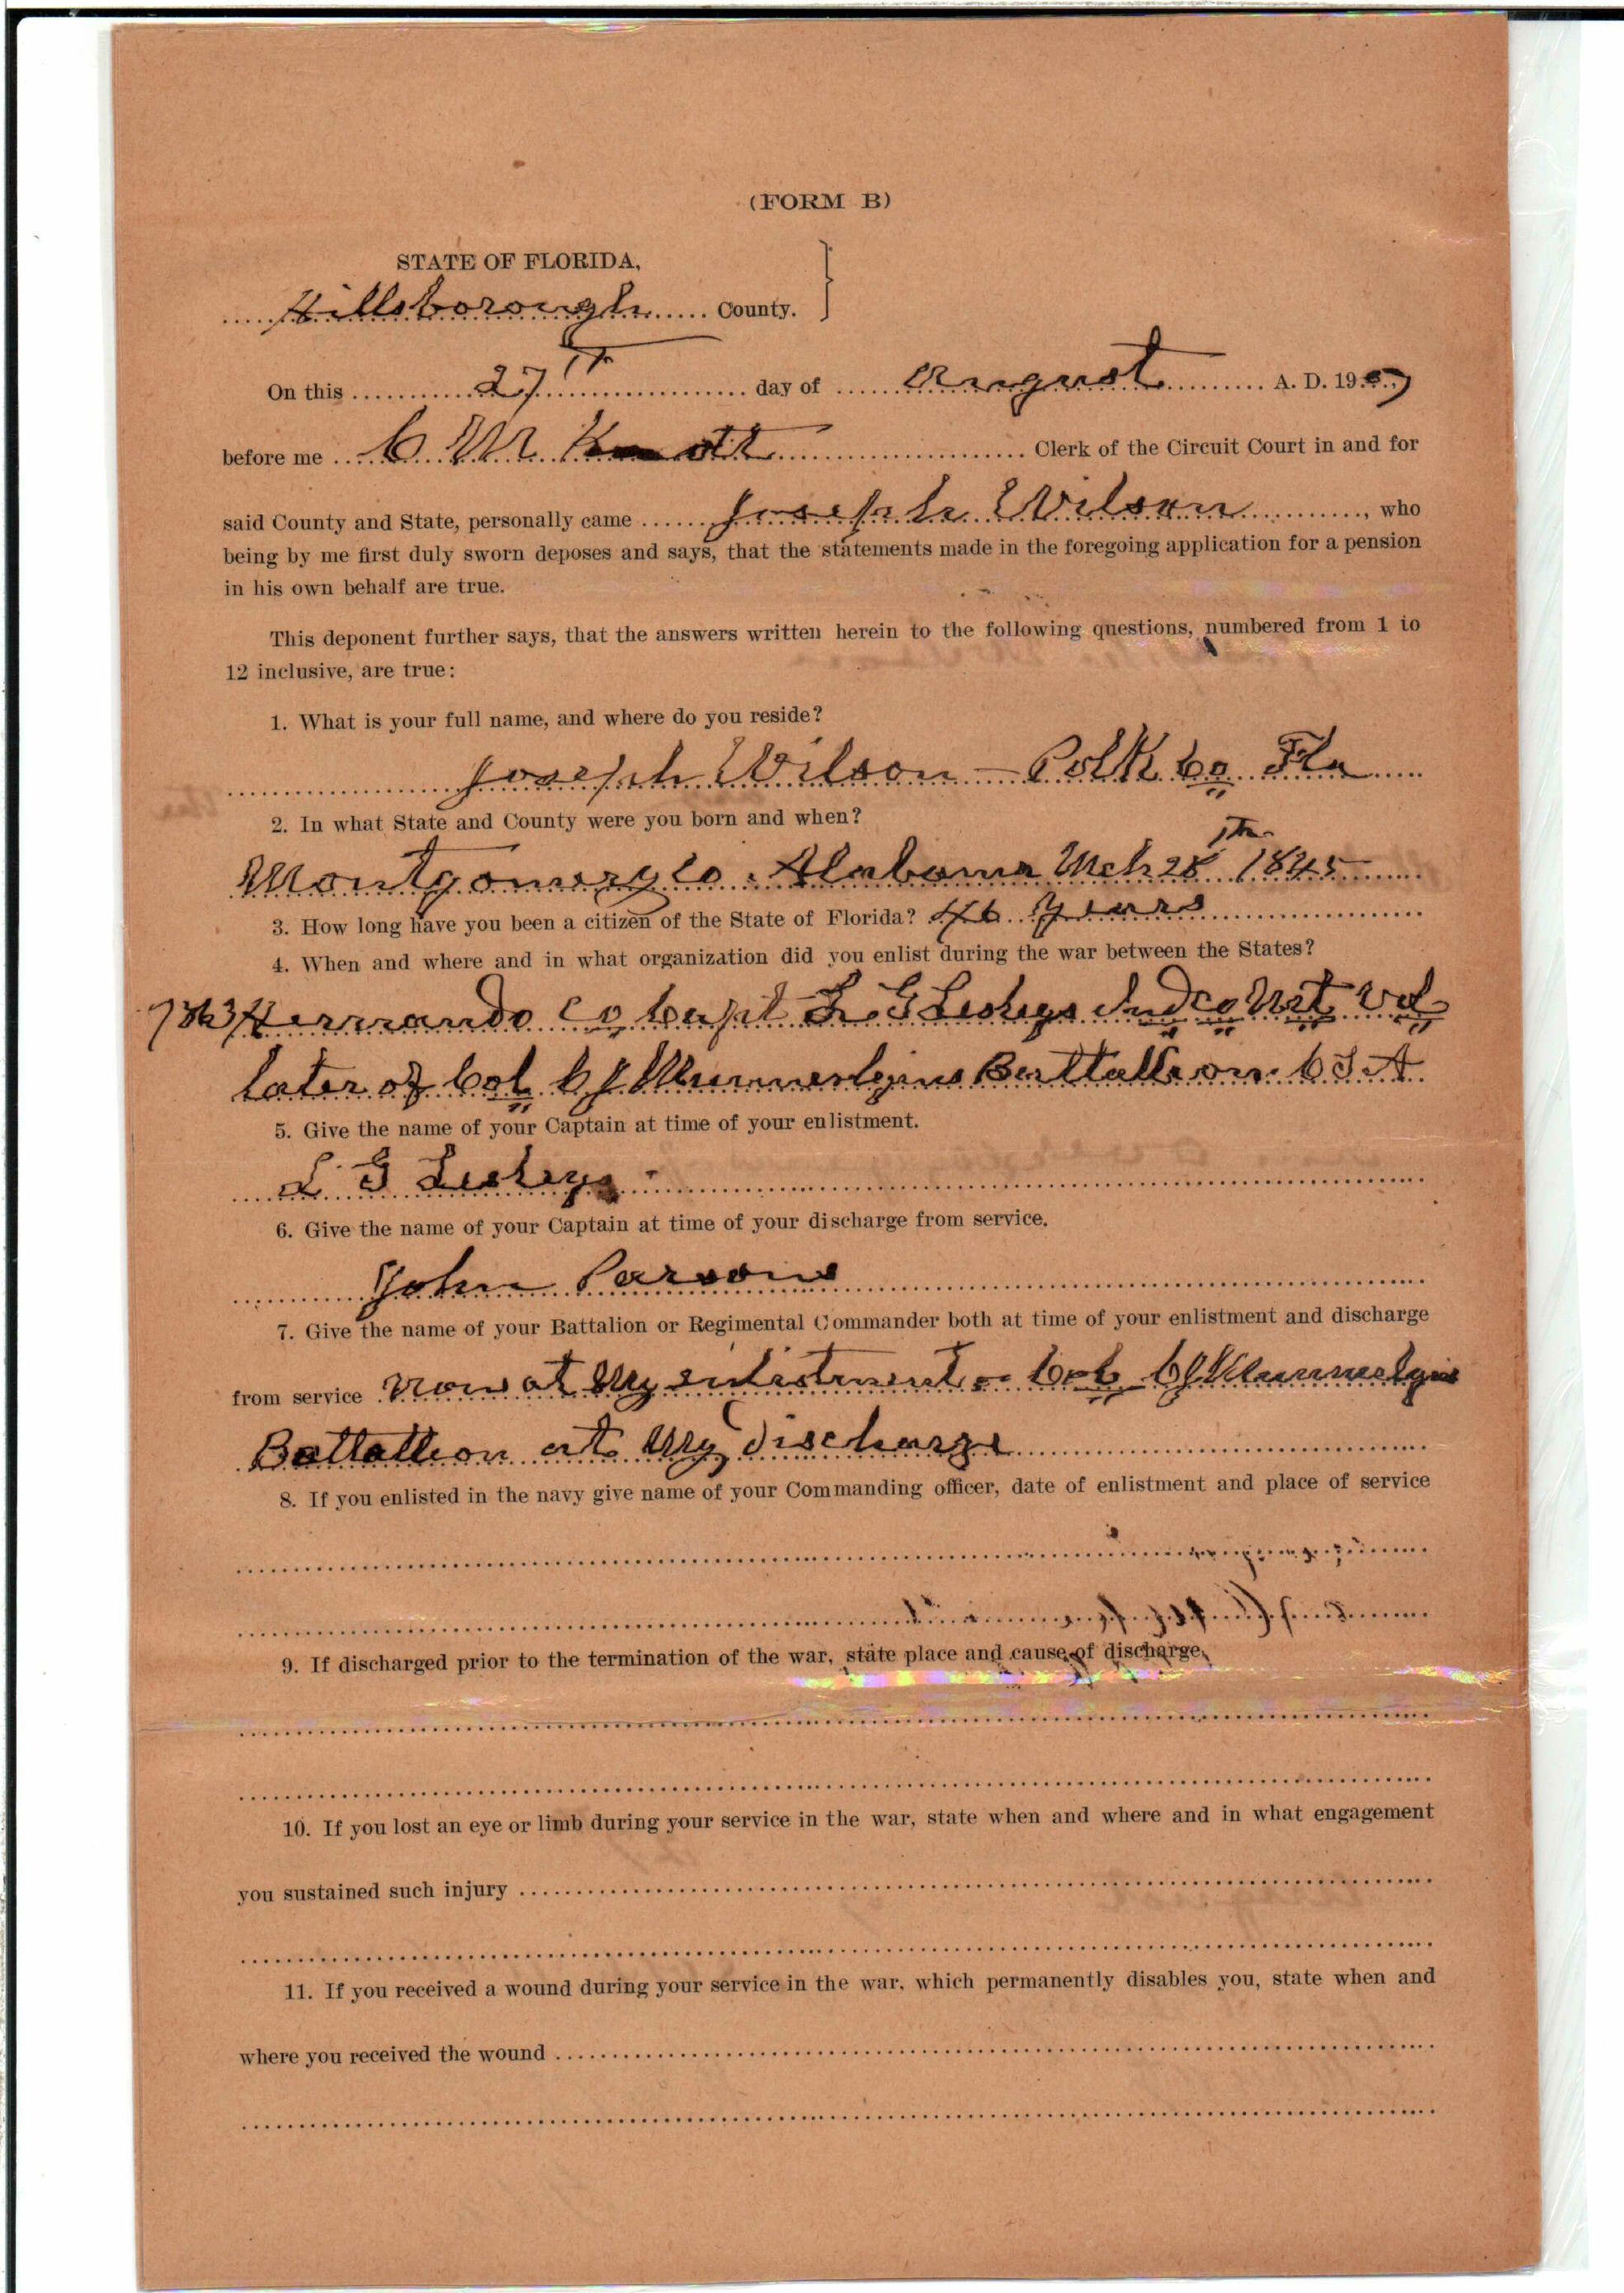 (FORM B)
STATE OF FLORIDA,
Hillsborough County.
On this 27th day of August A. D. 1907
before me C M Knott Clerk of the Circuit Court in and for
said County and State, personally came Joseph Wilson, who
being by me first duly sworn deposes and says, that the statements made in the foregoing application for a pension
in his own behalf are true.
This deponent further says, that the answers written herein to the following questions, numbered from 1 to
12 inclusive, are true:
1. What is your full name, and where do you reside?
Joseph Wilson - Polk Co Fla
2. In what State and County were you born and when?
Montgomery Co. Alabama Mch 28th 1845
3. How long have you been a citizen of the State of Florida? 46 years
4. When and where and in what organization did you enlist during the war between the States?
1863 Hernando Co Capt L. G Lesleys Ind Co
later of Col C J Munnerlyns Battallion C S A
5. Give the name of your Captain at time of your enlistment.
L. G Lesleys
6. Give the name of your Captain at time of your discharge from service.
John Parsons
7. Give the name of your Battalion or Regimental Commander both at time of your enlistment and discharge
from service non at my enlistment - Col C J Munnerlyns
Battallion at my discharge
8. If you enlisted in the navy give name of your Commanding officer, date of enlistment and place of service
9. If discharged prior to the termination of the war, state place and cause of discharge,
10. If you lost an eye or limb during your service in the war, state when and where and in what engagement
you sustained such injury
11. If you received a wound during your service in the war, which permanently disables you, state when and
where you received the wound